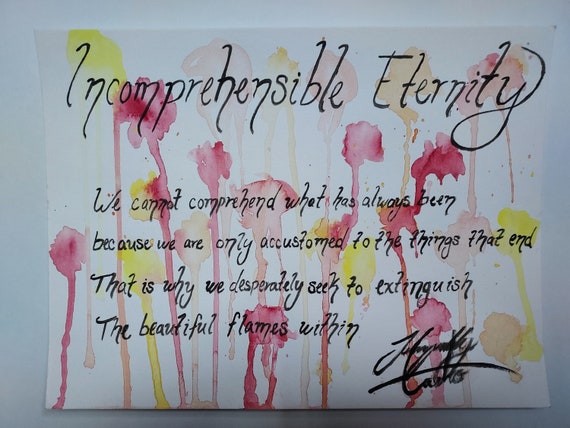 Incomprehensible Eternity
We cannot comprehend what has always been
because we are only accustomed to the things that end
That is why we desperately seek to extinguish
The beautiful flames within